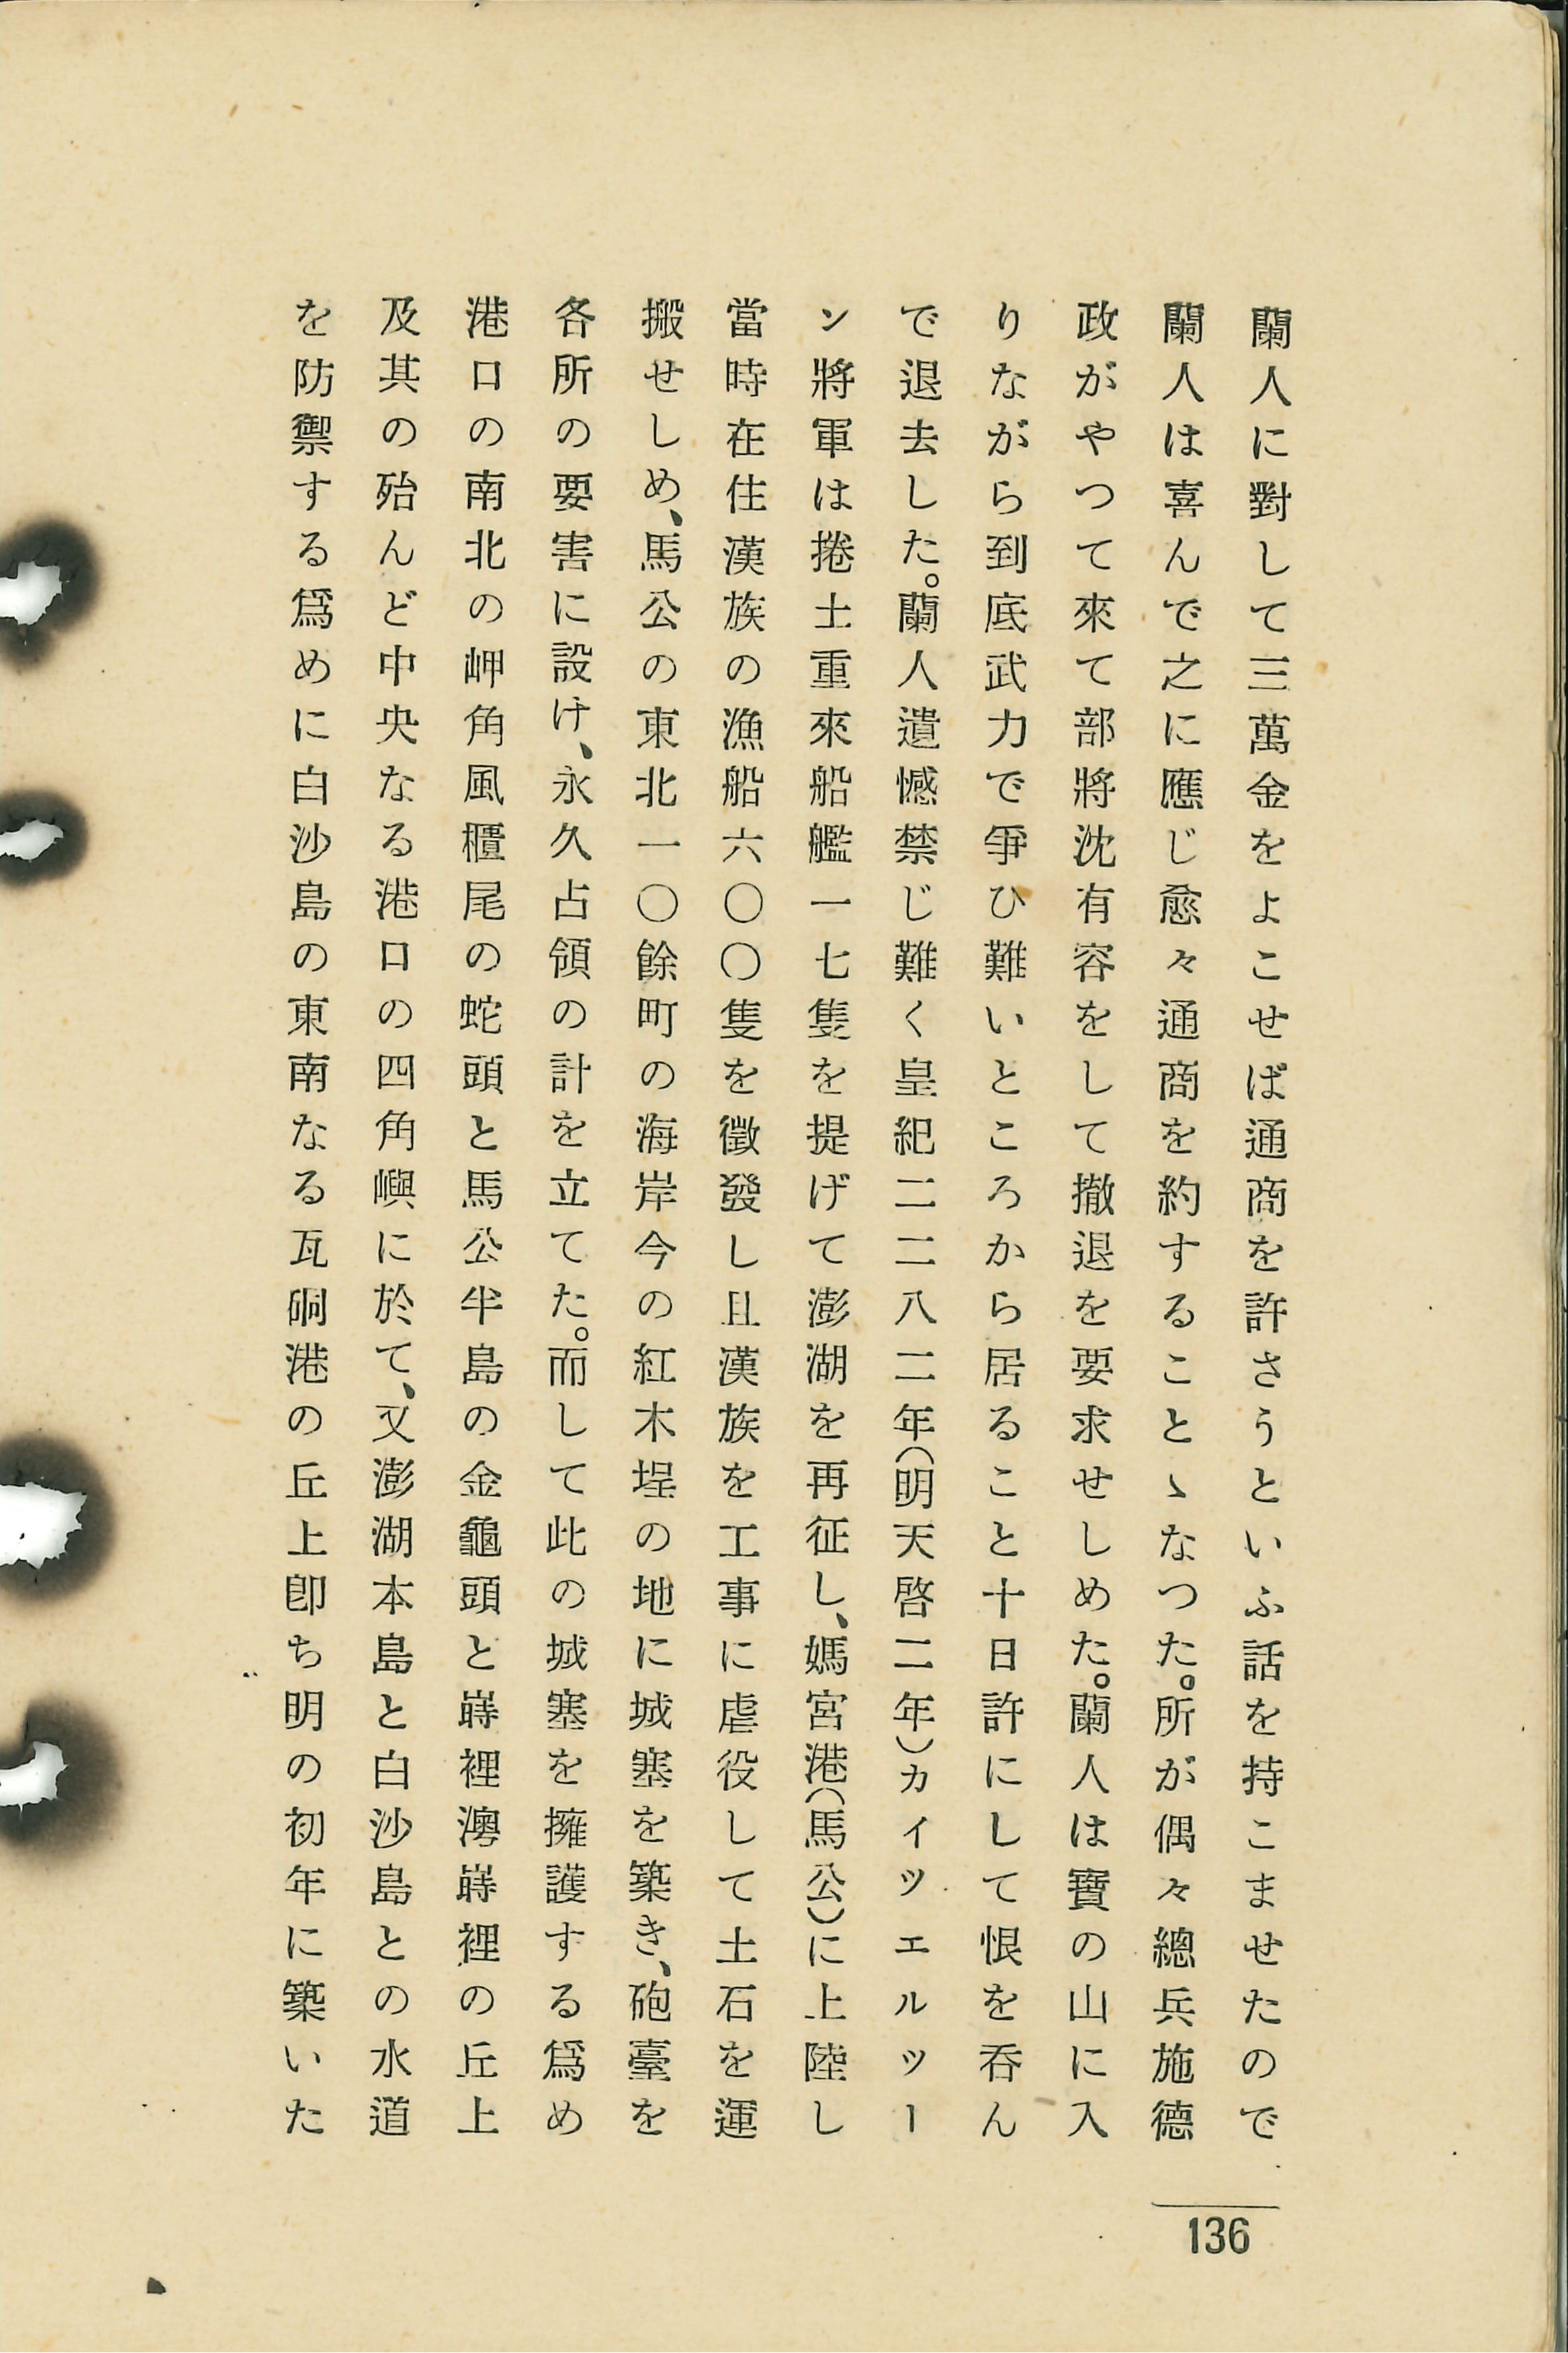 蘭人に對して三萬金をよこせば通商を許さうといふ話を持こませたので
蘭人は喜んで之に應じ愈々通商を約することゝなつた。所が偶々總兵施德
政がやつて來て部將沈有容をして撤退を要求せしめた。蘭人は寶の山に入
りながら到底武力で爭ひ難いところから居ること十日許にして恨を呑ん
で退去した。蘭人遺憾禁じ難く皇紀二二八二年(明天啓二年)カイツェルツー
ン將軍は捲土重來船艦一七隻を提げて澎湖を再征し、媽宮港(馬公)に上陸し
當時在住漢族の漁船六〇〇隻を徵發し且漢族を工事に虐役して土石を運
搬せしめ、馬公の東北一〇餘町の海岸今の紅木埕の地に城塞を築き、砲臺を
各所の要害に設け、永久占領の計を立てた。而して此の城塞を擁護する爲め
港口の南北の岬角風櫃尾の蛇頭と馬公半島の金龜頭と嵵裡澳嵵裡の丘上
及其の殆んど中央なる港口の四角嶼に於て、又澎湖本島と白沙島との水道
を防禦する爲めに白沙島の東南なる瓦硐港の丘上卽ち明の初年に築いた
136